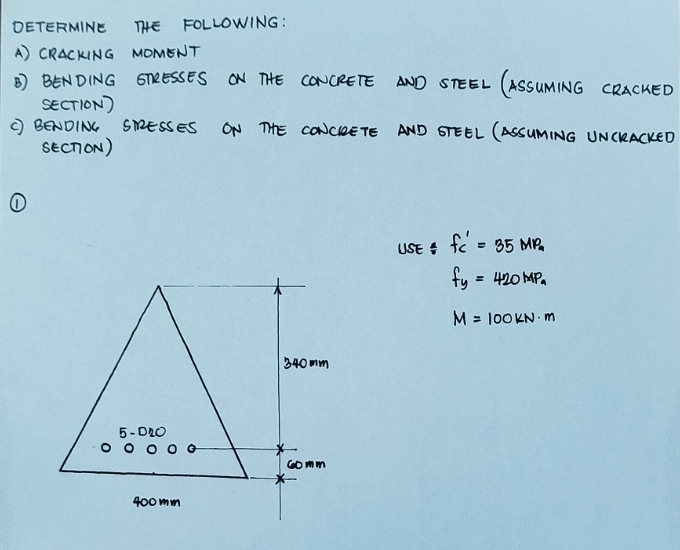 DETERMINE THE FOLLOWING:
A) CRACKING MOMENT
B) BENDING STRESSES ON THE CONCRETE AND STEEL (ASSUMING CRACKED
SECTION)
C) BENDING STRESSES ON THE CONCRETE AND STEEL (ASSUMING UNCRACKED
SECTION)
①
USE : fc' = 35 MPa
fy = 420 MPa
M = 100 KN·m
340mm
5-D20
60mm
400mm